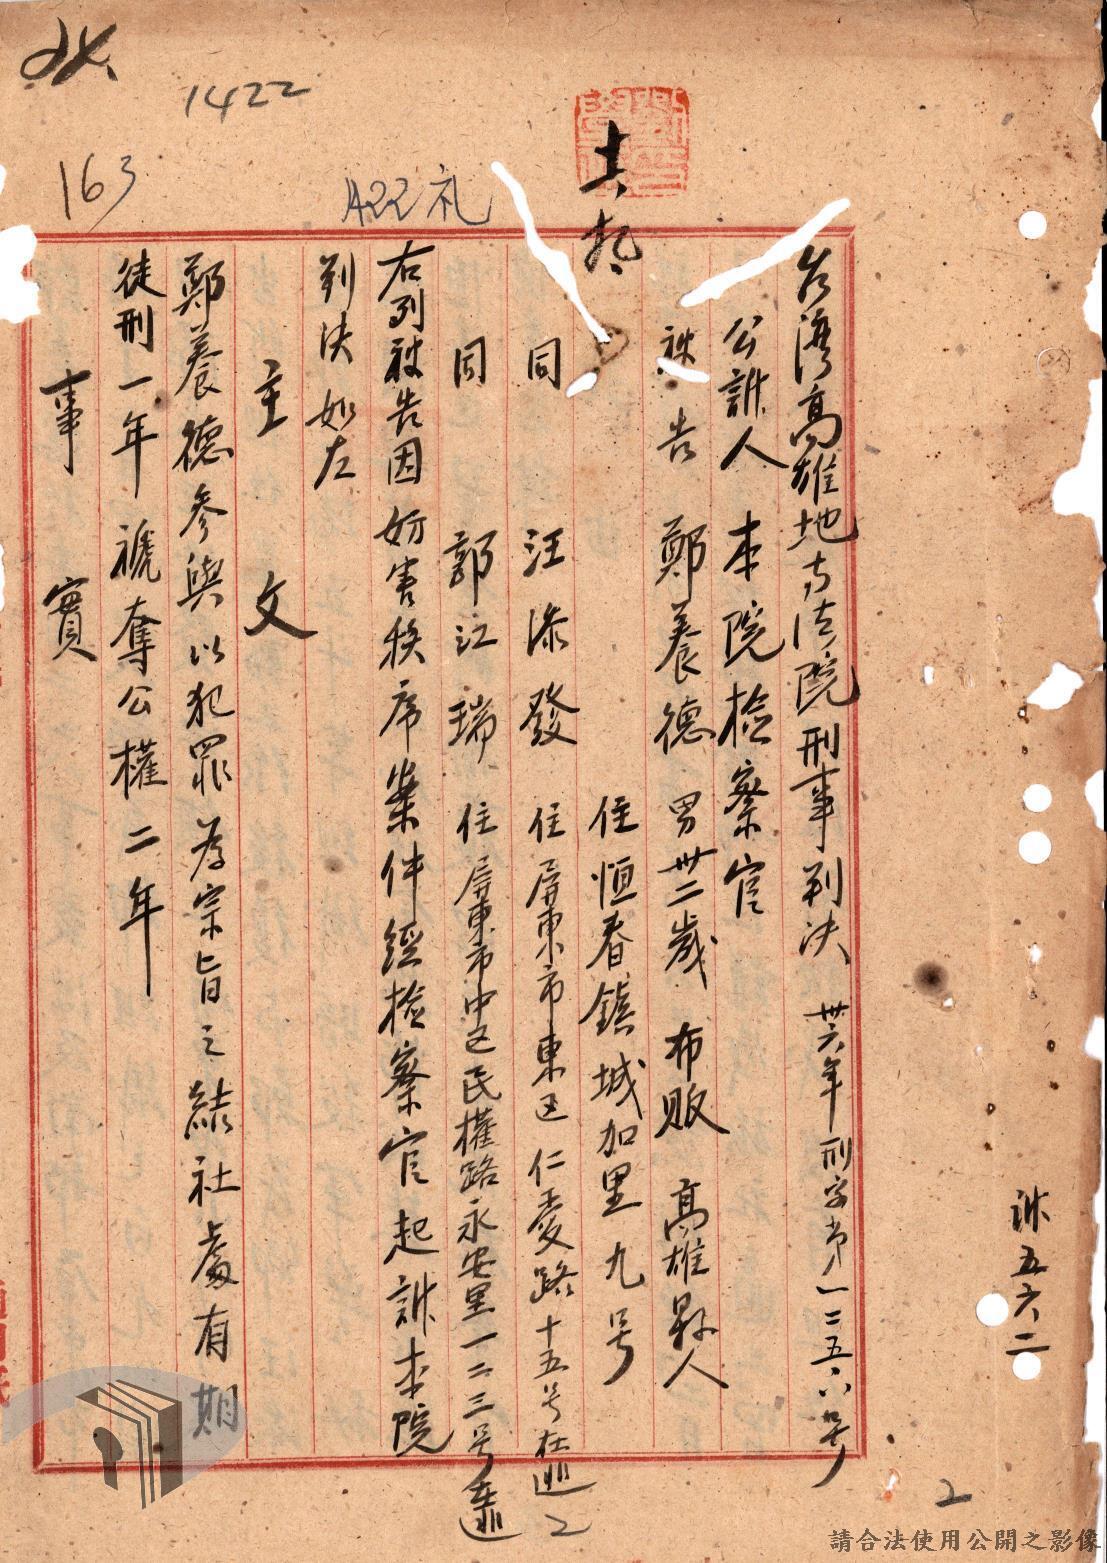 1422
163
A22礼
訴五六二
台湾高雄地方法院刑事判决 卅六年刑字第一二五六号
公訴人 本院检察官
被告 鄭養德 男 卅二歲 布贩 高雄縣人
住恒春鎮城加里九号
同 汪添發 住屏東市東区仁愛路十五号在逃
同 郭江瑞 住屏東市中区民權路永安里一二三号在逃
右列被告因妨害秩序案件經检察官起訴本院
判决如左
主文
鄭養德參與以犯罪为宗旨之結社處有期
徒刑一年褫奪公權二年
事實
2
請合法使用公開之影像